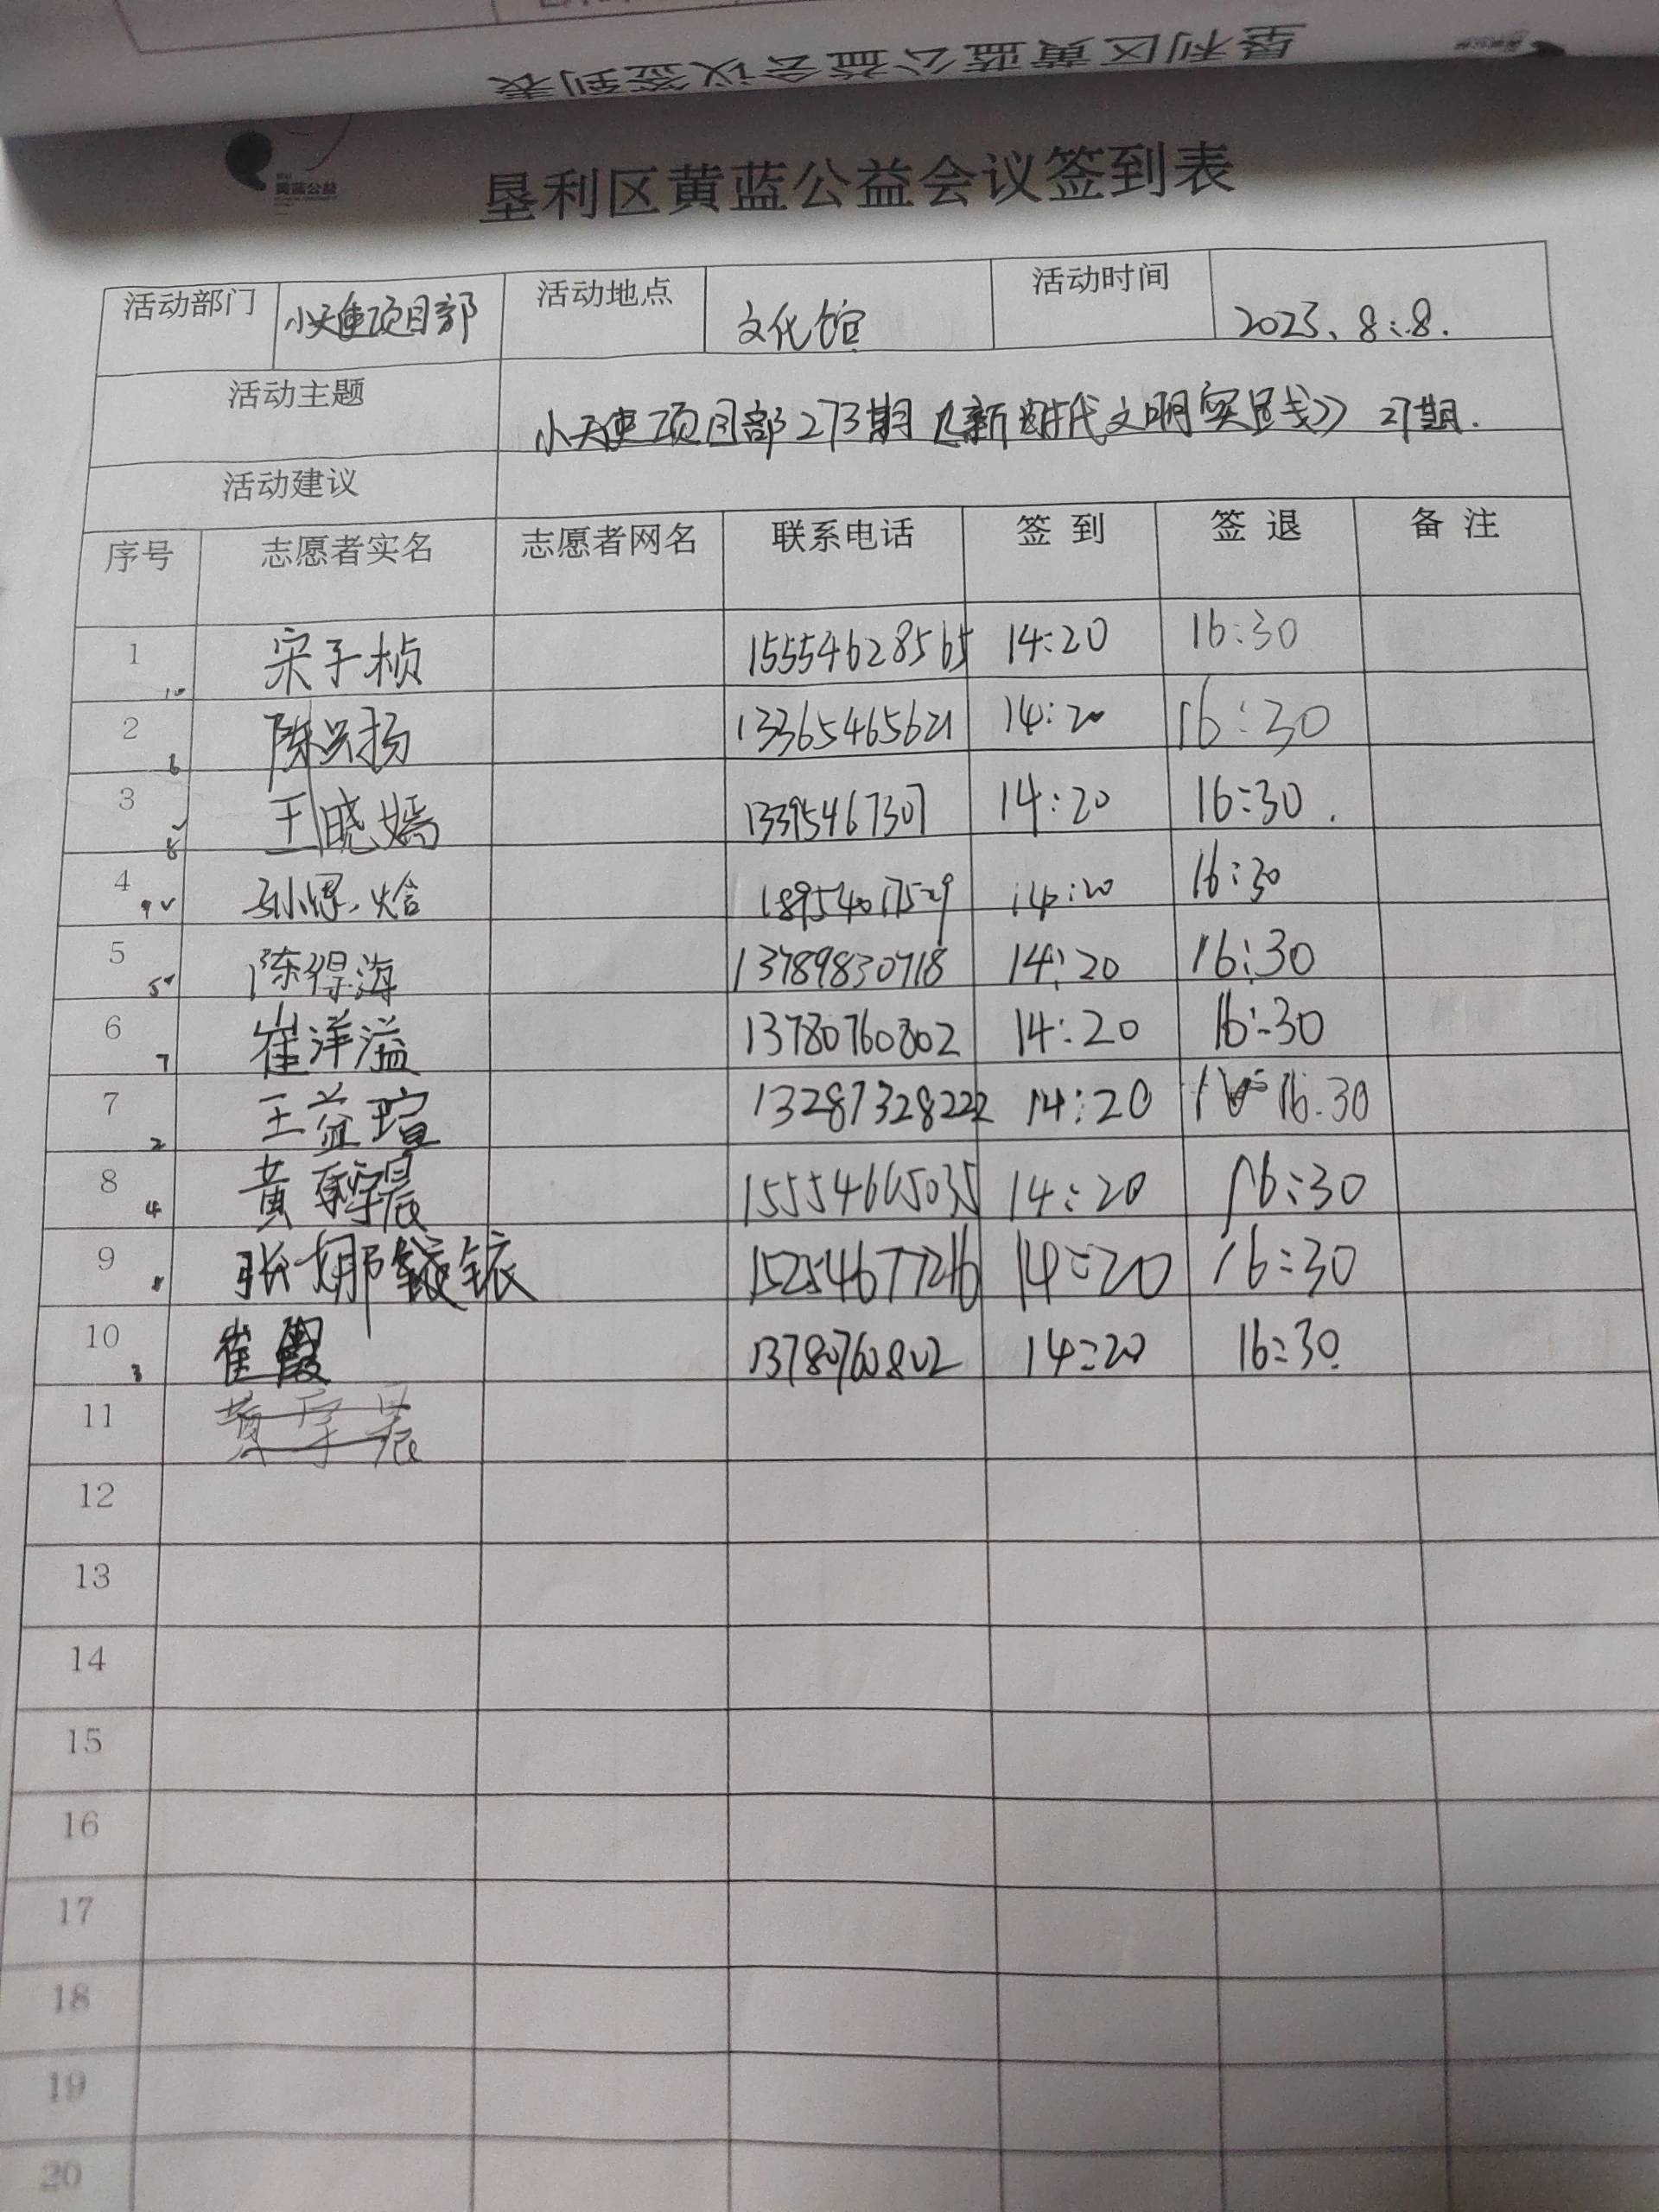 垦利区黄蓝公益会议签到表
黄蓝公益
垦利区黄蓝公益会议签到表
活动部门 小天使项目部 活动地点 文化馆 活动时间 2023、8.8.
活动主题 小天使项目部273期《新时代文明实践》27期.
活动建议
序号 志愿者实名 志愿者网名 联系电话 签到 签退 备注
1 10 宋子桢 15554628565 14:20 16:30
2 6 陈兴扬 13365465621 14:20 16:30
3 8 王晓嫣 13395467307 14:20 16:30.
4 9 孙煜焓 18954017529 14:20 16:30
5 5 陈得海 13789830718 14:20 16:30
6 7 崔洋溢 13780760802 14:20 16:30
7 2 王益瑄 13287328222 14:20 16.30
8 4 黄晨 15554665035 14:20 16:30
9 张娜 15254677216 14:20 16:30
10 3 崔霞 13780760802 14:20 16:30
11 黄孚晨
12
13
14
15
16
17
18
19
20